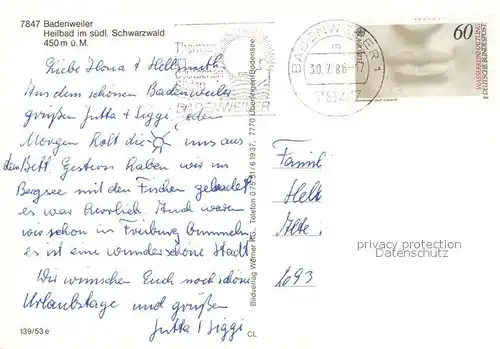 7847 Badenweiler
Heilbad im südl. Schwarzwald
450 m ü. M.
Liebe Ilona & Hellgmuth.
Aus dem schönen Badenweiler
grüßen Jutta & Siggi. Jeden
Morgen holt die uns aus
dem Bett. Gestern haben wir im
Bergsee mit den Fischen gebadet
es war herrlich. Auch waren
wir schon in Freiburg bummeln
es ist eine wunderschöne Stadt
Wir wünschen Euch noch schöne
Urlaubstage und grüßen
Jutta & Siggi
139/53 e
CL
Bildverlag Werner KG. Telefon 0 75 51 / 6 19 37, 7770 Überlingen/Bodensee
Thermen
BADENWEILER
BADENWEILER 1
m
30.7.86-17
7847
60
WASSERREINHALTUNG
DEUTSCHE BUNDESPOST
Famil
Hell
Alte
privacy protection
Datenschutz
2093